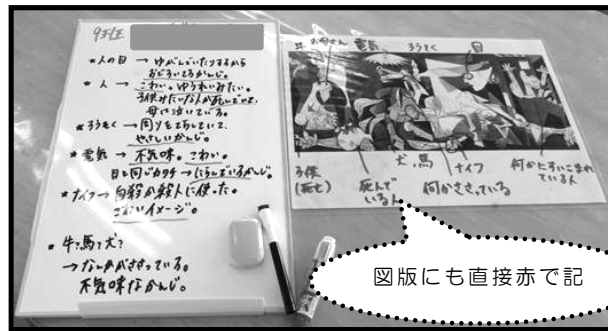 9班
*人の目 → ゆがんでいたりするから
おどろいてるかんじ。
*人 → こわい。ゆうれいみたい。
子供みたいな人が死んでいて、
母が泣いている。
*ろうそく → 周りをてらしていて、
やさしいかんじ。
*電気 → 不気味。こわい。
目と同じカタチ → にらんでいるかんじ。
*ナイフ → 自殺か殺人に使った。
こわいイメージ。
*牛?馬?犬?
→ なんかがささっている。
不気味なかんじ。
牛 お母さん 電気 ろうそく 目
子供
(死亡)
死んで
いる人
犬、馬
何かささっている
ナイフ
何かにすいこまれ
ている人
図版にも直接赤で記